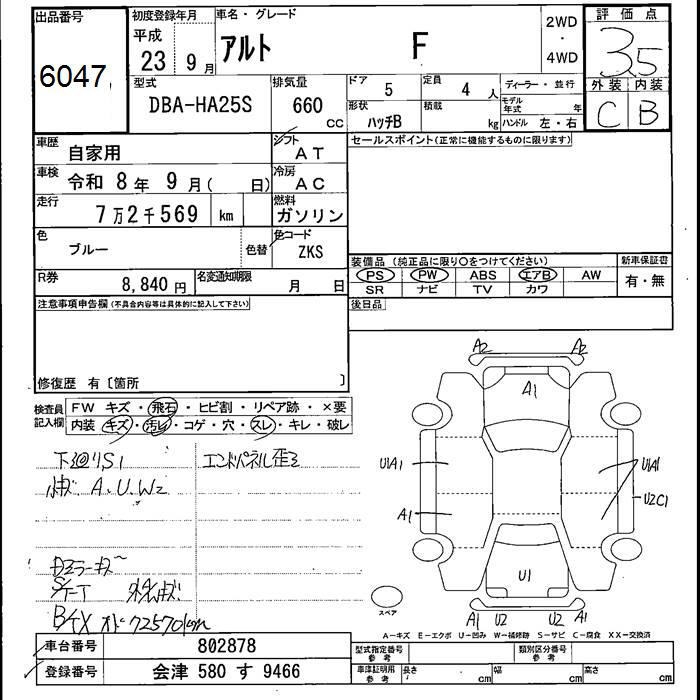 出品番号
6047
初度登録年月
平成
23年 9月
車名・グレード
アルト F
2WD
・
4WD
評価点
3.5
外装 内装
C B
型式
DBA-HA25S
排気量
660
CC
ドア
5
定員
4 人
形状
ハッチB
積載
kg
ディーラー・並行
モデル年式
年
ハンドル 左・右
車歴
自家用
シフト
AT
車検
令和 8年 9月( 日)
冷房
AC
走行
7万2千569 km
燃料
ガソリン
色
ブルー
色替
色コード
ZKS
R券
8,840円
名変通知期限
月 日
セールスポイント(正常に機能するものに限ります)
装備品(純正品に限り○をつけてください)
PS PW ABS エアB AW
SR ナビ TV カワ
新車保証書
有・無
後日品
注意事項申告欄(不具合内容等は具体的に記入して下さい)
修復歴 有〔箇所 〕
検査員記入欄
FW キズ・飛石・ヒビ割・リペア跡・×要
内装・キズ・汚レ・コゲ・穴・スレ・キレ・破レ
下廻りS1
エンドパネル歪ミ
A.U.W2
ミラーキズ
オドメ72570km
A2 A2
A1
U1A1
U1A1
U2C1
A1
U1
スペア
A1 U2 U2 A1
A-キズ E-エクボ U-凹み W-補修跡 S-サビ C-腐食 XX-交換済
車台番号
802878
登録番号
会津 580 す 9466
型式指定番号
参考
類別区分番号
参考
車庫証明用
参考
長さ cm
幅 cm
高さ cm